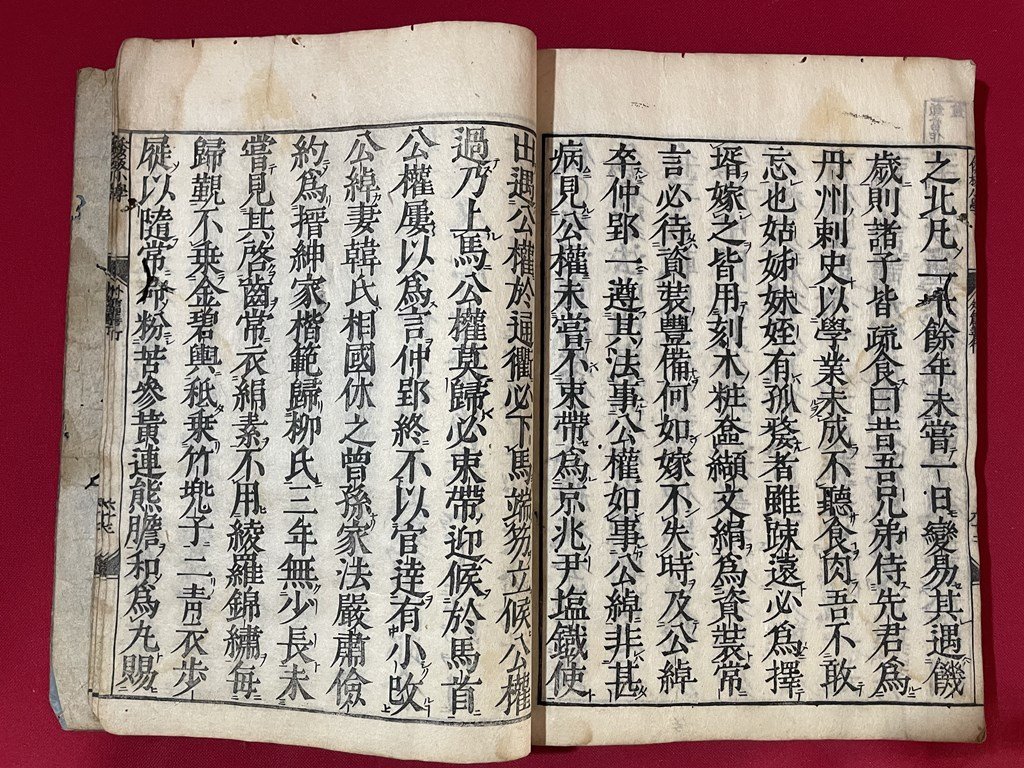 之北凡二十餘年未嘗一日變易其遇饑
歲則諸子皆疏食曰昔吾兄弟侍先君爲
丹州刺史以學業未成不聽食肉吾不敢
忘也姑姊妹姪有孤嫠者雖疎遠必爲擇
壻嫁之皆用刻木粧奩纈文絹爲資裝常
言必待資裝豐備何如嫁不失時及公綽
卒仲郢一遵其法事公權如事公綽非甚
病見公權未嘗不束帶爲京兆尹塩鐵使
出遇公權於通衢必下馬端笏立候公權
過乃上馬公權莫歸必束帶迎候於馬首
公權屢以爲言仲郢終不以官達有小改
公綽妻韓氏相國休之曾孫家法嚴肅儉
約爲搢紳家楷範歸柳氏三年無少長未
嘗見其啓齒常衣絹素不用綾羅錦繡每
歸覲不乗金碧輿秖乗竹兠子二青衣步
屣以隨常命粉苦參黄連熊膽和爲丸賜